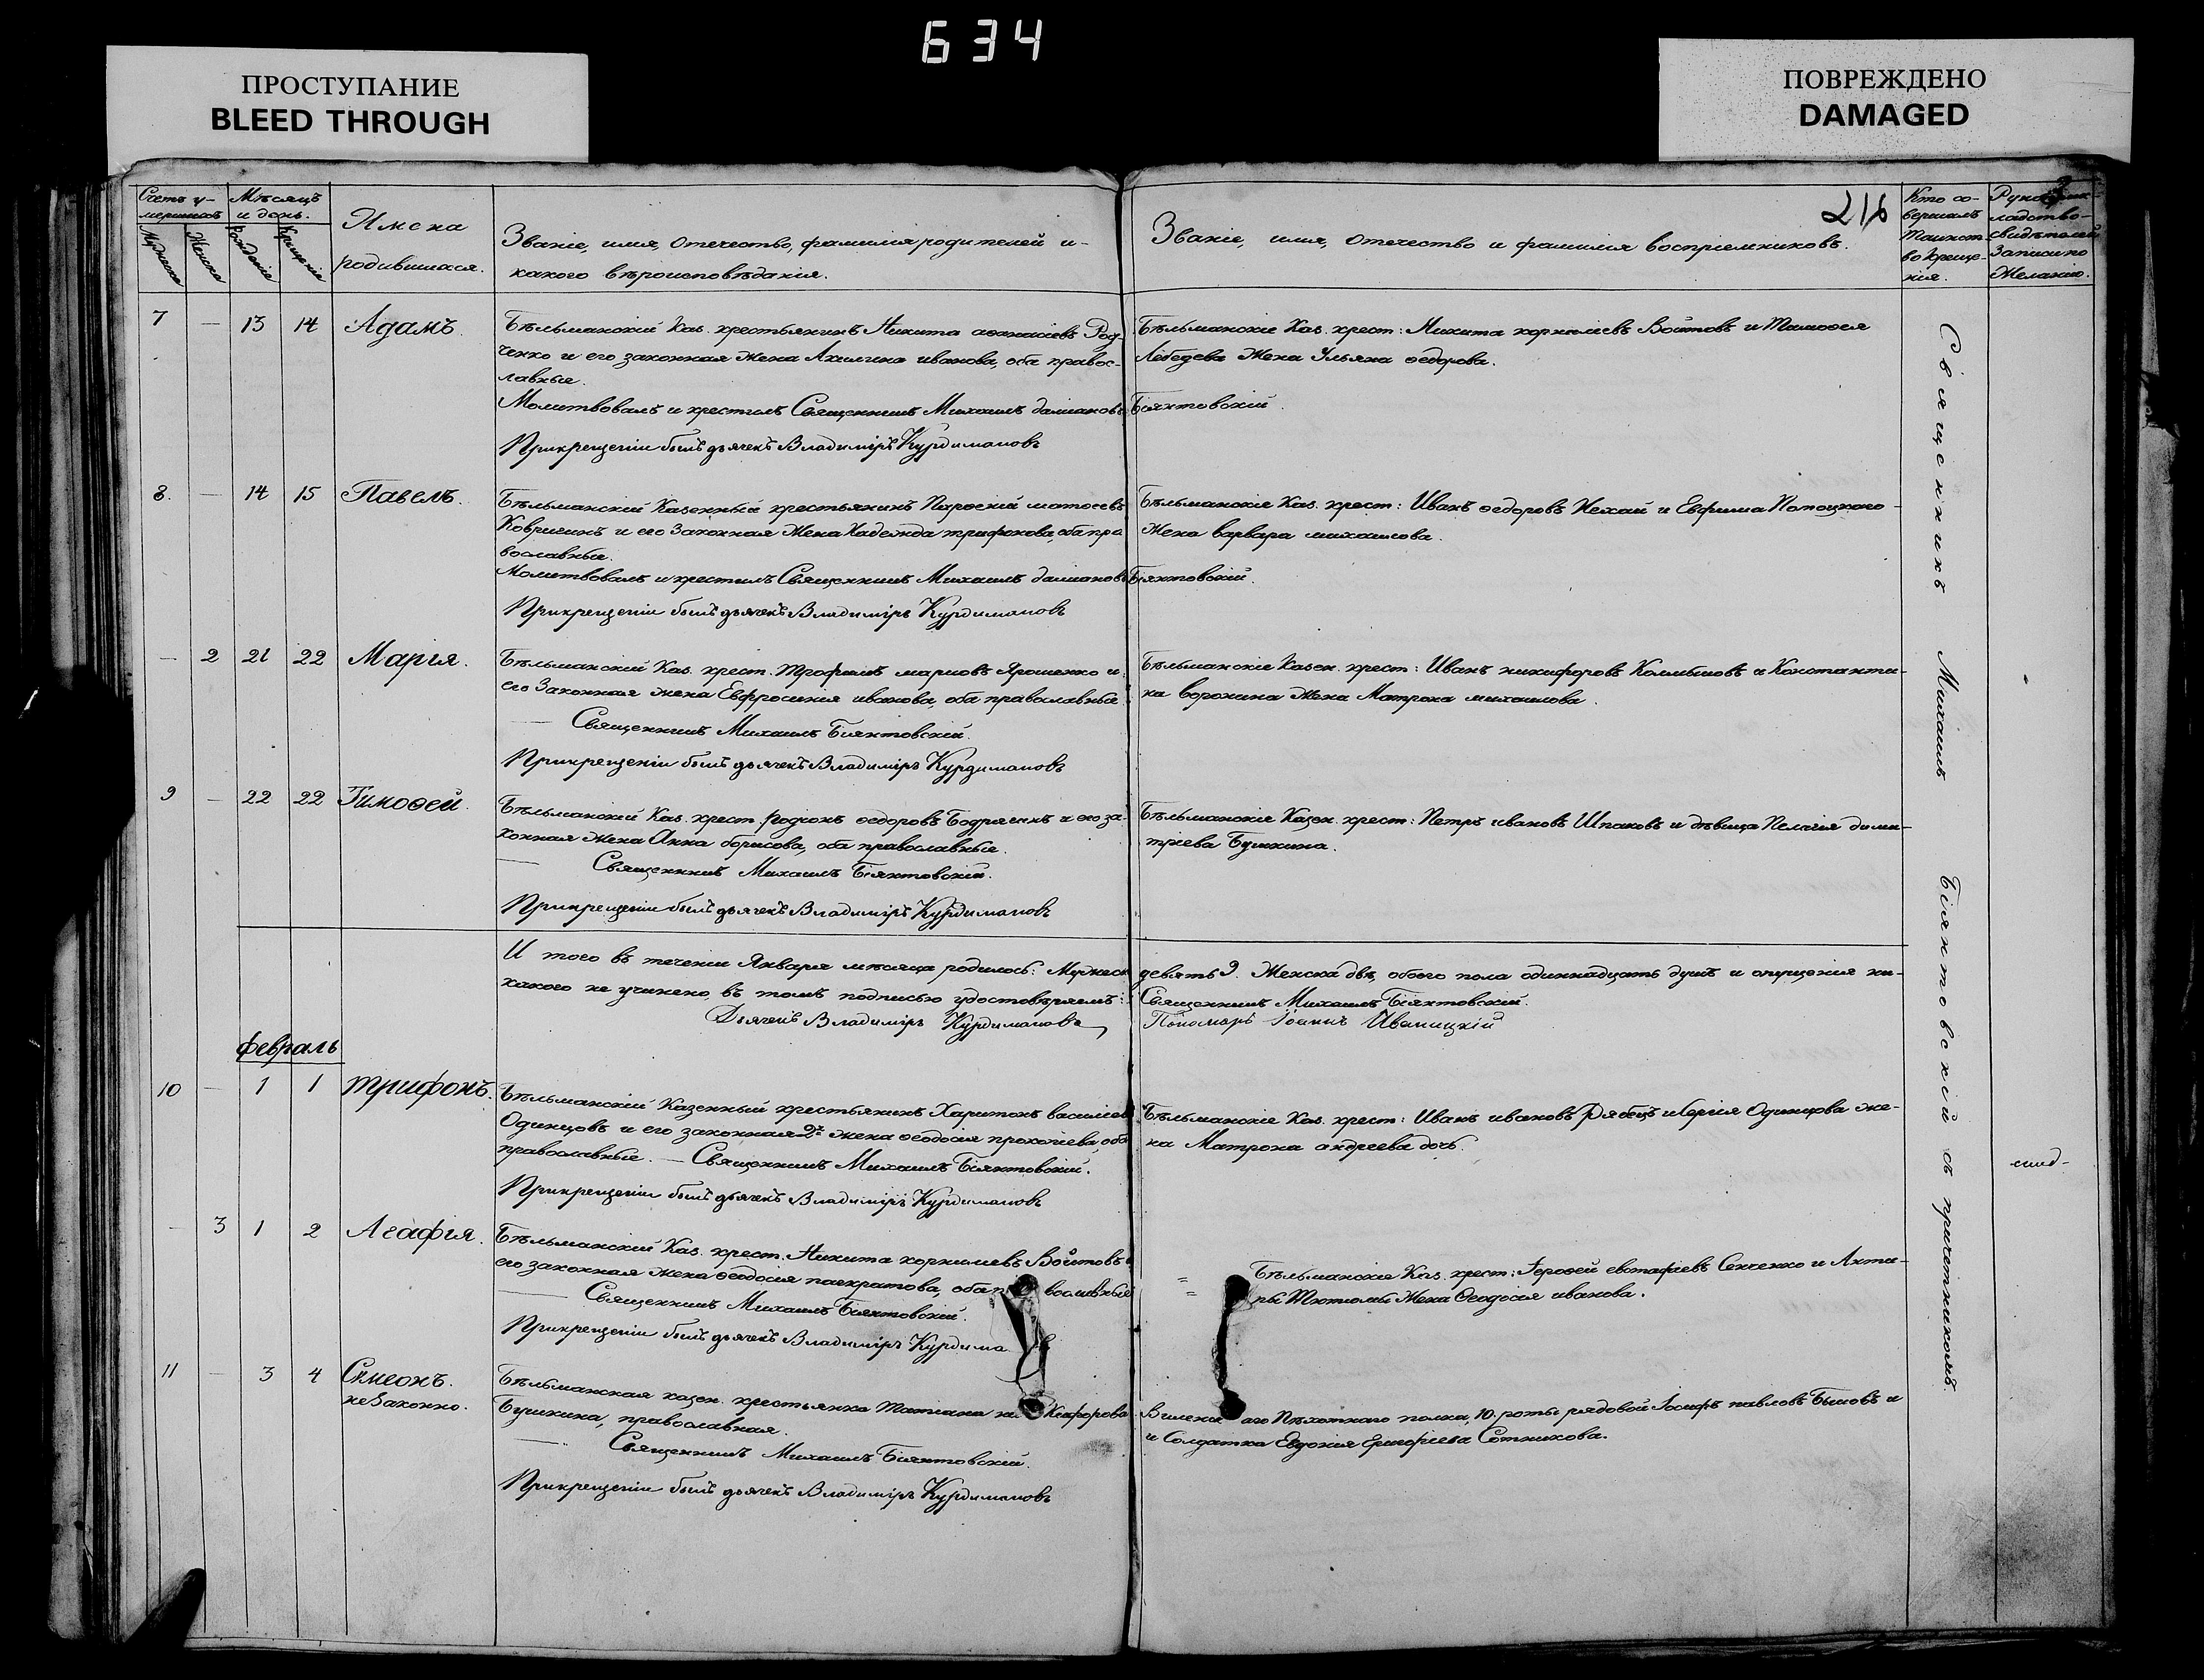 634
ПРОСТУПАНИЕ
BLEED THROUGH
ПОВРЕЖДЕНО
DAMAGED
216
Счетъ у-
мершихъ
Мѣсяцъ
и день.
Мужеска
Женска
Рожденія
Крещенія
Имена
родившихся.
Званіе, имя, отечество, фамилія родителей и
какого вѣроисповѣданія.
Званіе, имя, отечество и фамилія воспріемниковъ.
Кто со-
вершалъ
Таинст-
во Креще-
нія.
свидѣтелей
Записи по
Желанію.
7 — 13 14 Адамъ.
Бѣльманскій Каз. крестьянинъ Никита аѳанасіевъ
ченко и его законная жена Акилина иванова, оба правос-
лавные.
Молитвовалъ и крестилъ Священникъ Михаилъ даміановъ Біянтовскій.
Прикрещеніи былъ дьячекъ Владиміръ Курдимановъ
Бѣльманскіе Каз. крест: Никита корниліевъ Войтовъ и Тимоѳея
Лебедева Жена Ульяна ѳедорова.
8. — 14 15 Павелъ.
Бѣльманскій Казенный крестьянинъ
и его Законная Жена Надежда трифонова, оба пра
вославные.
Молитвовалъ и крестилъ Священникъ Михаилъ даміановъ Біянтовскій.
Прикрещеніи былъ дьячекъ Владиміръ Курдимановъ
Бѣльманскіе Каз. крест: Иванъ ѳедоровъ Нехай и Евфима Потоцкого
Жена варвара михаилова.
— 2 21 22 Марія.
Бѣльманскій Каз. крест. Трофимъ марковъ Ярошенко и
его Законная жена Евфросинія иванова, оба православные
Священникъ Михаилъ Біянтовскій.
Прикрещеніи былъ дьячекъ Владиміръ Курдимановъ
Бѣльманскіе Казен. крест: Иванъ никифоровъ Колмыковъ и Константи-
на Воронина Жена Матрона михаилова.
9 — 22 22 Тимоѳей.
Бѣльманскій Каз. крест. родіонъ ѳедоровъ Бодрягинъ и его за-
конная жена Анна борисова, оба православные.
Священникъ Михаилъ Біянтовскій.
Прикрещеніи былъ дьячекъ Владиміръ Курдимановъ
Бѣльманскіе Казен. крест: Петръ ивановъ Шпаковъ и дѣвица Пелагія дими-
тріева Бушкина.
И того въ теченіи Января мѣсяца родилось: Мужеск девять 9. Женска двѣ, обоего пола одиннадцать душъ и опущенія ни-
какого не учинено, въ томъ подписью удостовѣряемъ: Священникъ Михаилъ Біянтовскій.
Дьячекъ Владиміръ Курдимановъ
Пономарь Іоаннъ Иваницкій
Февраль
10 — 1 1 Трифонъ.
Бѣльманскій Казенный крестьянинъ Харитонъ василіев
Одинцовъ и его законная 2я жена ѳеодосія прокопіева, оба
православные. — Священникъ Михаилъ Біянтовскій.
Прикрещеніи былъ дьячекъ Владиміръ Курдимановъ
Бѣльманскіе Каз. крест: Иванъ ивановъ Рябецъ и Сергія Одинцова же-
на Матрона андреева дочь.
— 3 1 2 Агафія.
Бѣльманскій Каз. крест. Никита корниліевъ Войтовъ и
его законная жена ѳеодосія панкратова, оба
Священникъ Михаилъ Біянтовскій.
Прикрещеніи былъ дьячекъ Владиміръ Курдима
Бѣльманскіе Каз. крест: Іероѳей евстафіевъ Сенченко и Анти-
пы Тютюмы Жена Ѳеодосія иванова.
11 — 3 4 Сѵмеонъ.
неЗаконно.
Бѣльманская казен. крестьянка Татіана
Бушкина, православная.
Священникъ Михаилъ Біянтовскій.
Прикрещеніи былъ дьячекъ Владиміръ Курдимановъ
Пѣхотнаго полка, 10. роты рядовой Іосифъ павловъ Быковъ и
и Солдатка Евдокія Сотникова.
Священникъ Михаилъ Біянтовскій съ причетникомъ.